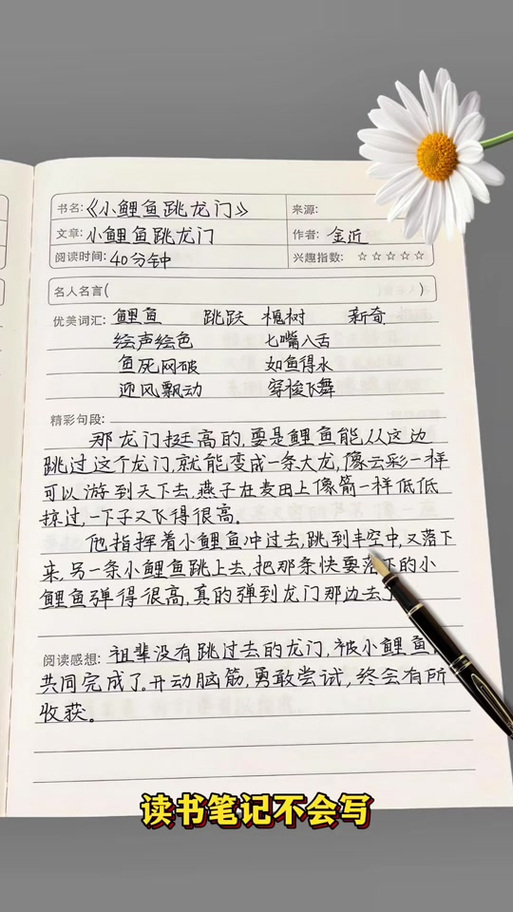 书名:《小鲤鱼跳龙门》 来源:
文章:小鲤鱼跳龙门 作者:金近
阅读时间:40分钟 兴趣指数:☆☆☆☆☆
名人名言( )
优美词汇:鲤鱼 跳跃 槐树 新奇
绘声绘色 七嘴八舌
鱼死网破 如鱼得水
迎风飘动 穿梭飞舞
精彩句段:
那龙门挺高的,要是鲤鱼能从这边
跳过这个龙门,就能变成一条大龙,像云彩一样
可以游到天下去,燕子在麦田上像箭一样低低
掠过,一下子又飞得很高.
他指挥着小鲤鱼冲过去,跳到半空中,又落下
来,另一条小鲤鱼跳上去,把那条快要落下的小
鲤鱼弹得很高,真的弹到龙门那边去
阅读感想:祖辈没有跳过去的龙门,被小鲤鱼
共同完成了.开动脑筋,勇敢尝试,终会有所
收获。
读书笔记不会写